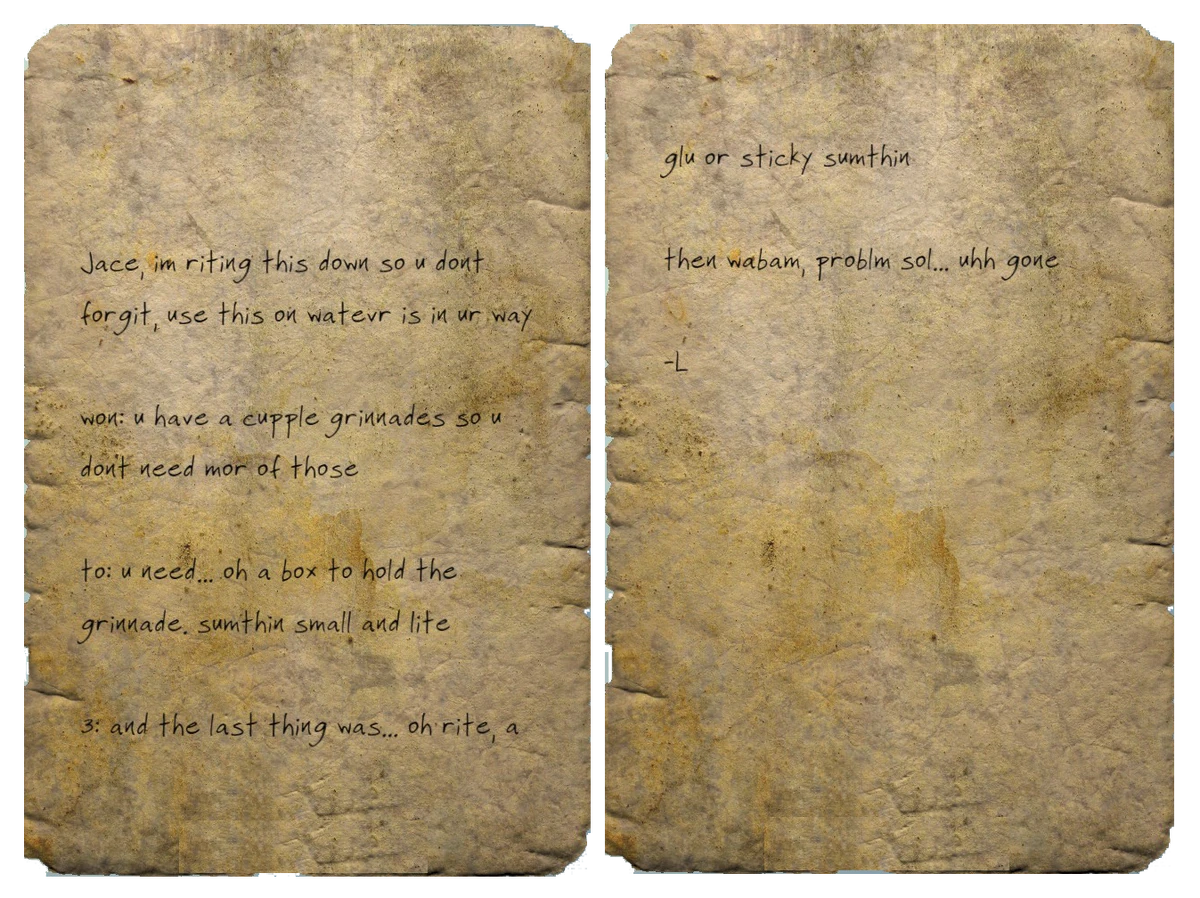 Jace, im riting this down so u dont
forgit, use this on watevr is in ur way
won: u have a cupple grinnades so u
dont need mor of those
to: u need... oh a box to hold the
grinnade. sumthin small and lite
3: and the last thing was... oh rite, a
glu or sticky sumthin
then wabam, problm sol... uhh gone
-L